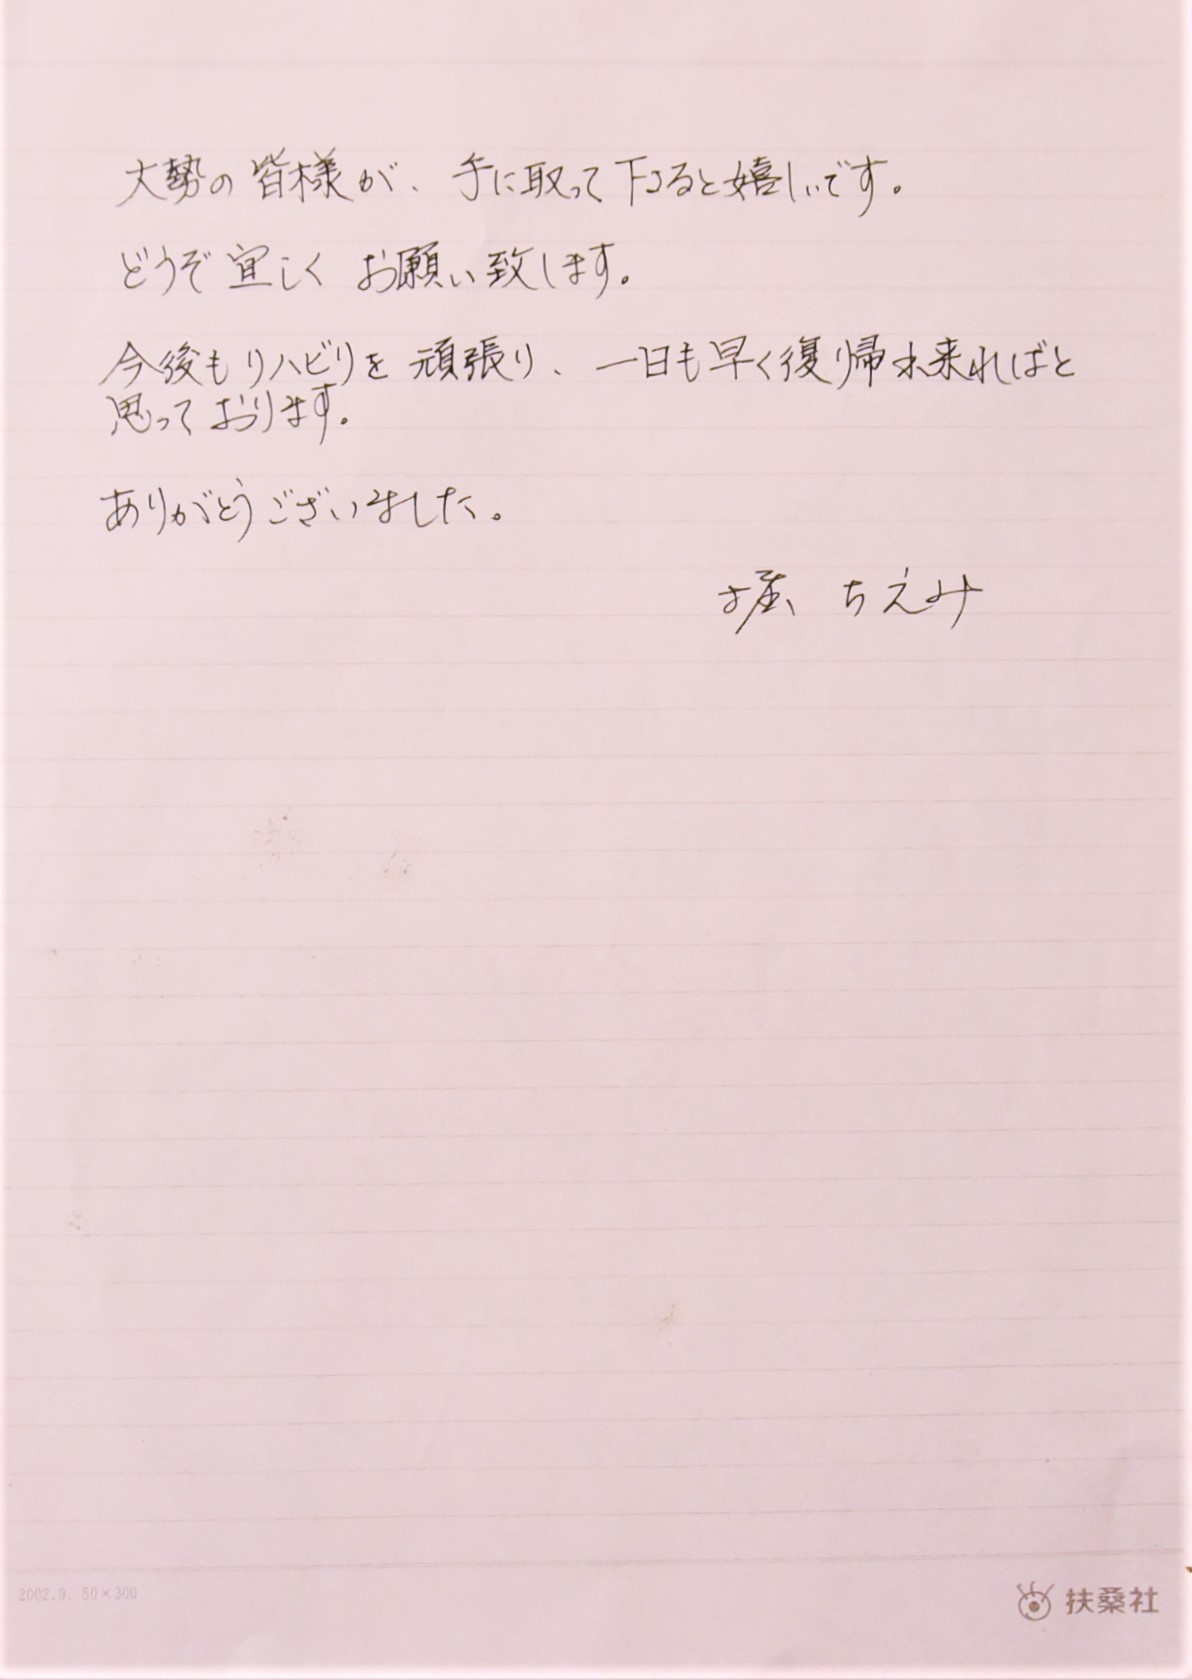 大勢の皆様が、手に取って下さると嬉しいです。
どうぞ宜しくお願い致します。
今後もリハビリを頑張り、一日も早く復帰出来ればと
思っております。
ありがとうございました。
堀 ちえみ
2002.9. 50×300
扶桑社